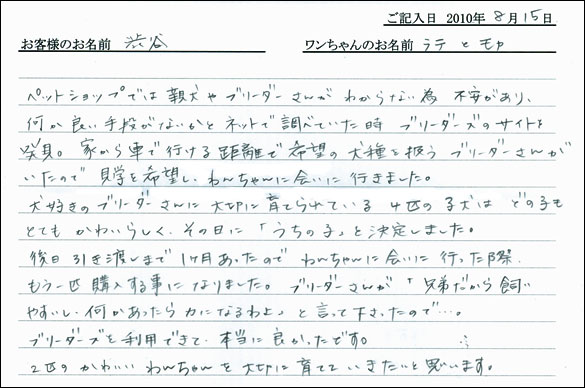 ご記入日 2010年 8月 15日
お客様のお名前 渋谷 ワンちゃんのお名前 ラテ と モカ
ペットショップでは 親犬や ブリーダーさんが わからない為 不安があり、
何か良い手段がないかと ネットで調べていた時 ブリーダーズのサイトを
発見。家から車で行ける距離で希望の犬種を扱う ブリーダーさんが
いたので 見学を希望し、わんちゃんに会いに行きました。
犬好きのブリーダーさんに 大切に育てられている 4匹の子犬は どの子も
とても かわいらしく、その日に「うちの子」と決定しました。
後日 引き渡しまで 1ヶ月あったので わんちゃんに会いに 行った際、
もう一匹 購入する事に なりました。ブリーダーさんが「兄弟だから 飼い
やすいし、何かあったら力になるわよ」と言って下さったので…。
ブリーダーズを利用できて、本当に良かったです。
2匹の かわいい わんちゃんを 大切に育てて いきたいと思います。